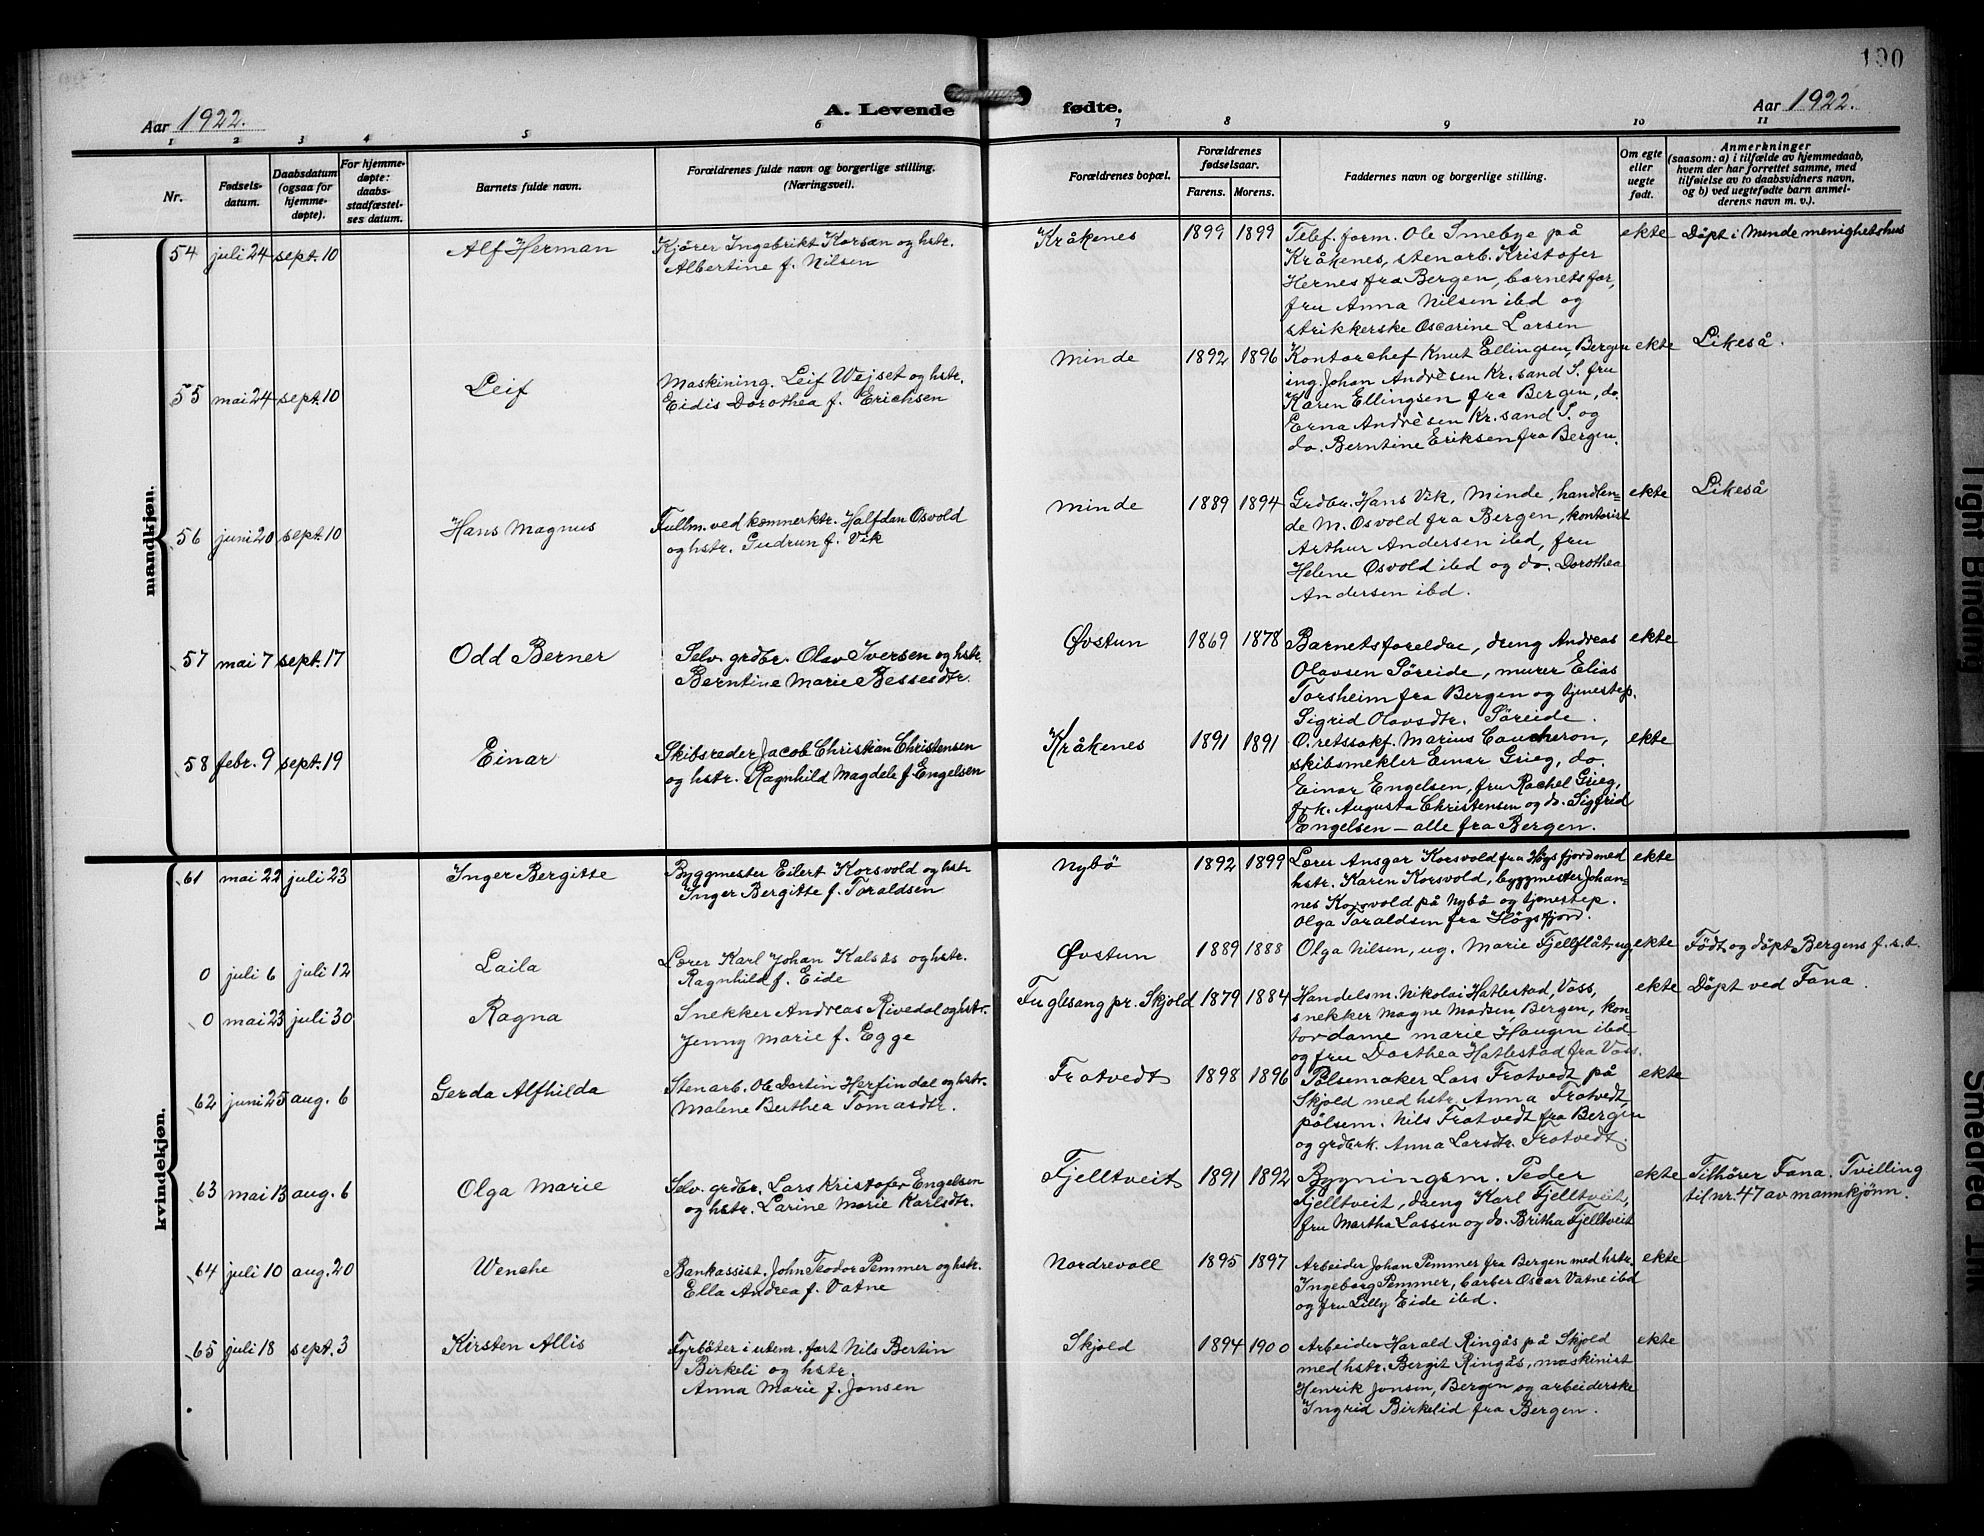 190
Aar 1922.
A. Levende fødte.
Aar 1922.
1 2 3 4 5 6 7 8 9 10 11
Nr.
Fødsels-
datum.
Daabsdatum
(ogsaa for
hjemme-
døpte).
For hjemme-
døpte:
daabs-
stadfæstel-
ses datum.
Barnets fulde navn.
Forældrenes fulde navn og borgerlige stilling.
(Næringsvei).
Forældrenes bopæl.
Forældrenes
fødselsaar.
Farens. Morens.
Faddernes navn og borgerlige stilling.
Om egte
eller
uegte
født.
Anmerkninger
(saasom: a) i tilfælde av hjemmedaab,
hvem der har forrettet samme, med
tilføielse av to daabsvidners navn,
og b) ved uegtefødte barn anmel-
derens navn m. v.).
mandkjøn.
54 juli 24 sept. 10 Alf Herman
Kjörer Ingebrikt Korsæn og hstr.
Albertine f. Nilsen
Kråkenes 1899 1899
Telef. form. Ole Smebye på
Kråkenes, stenarb. Kristofer
Hernes fra Bergen, barnets far,
fru Anna Nilsen ibd og
strikkerske Oscarine Larsen
ekte Döpt i Minde menighetshus
55 mai 24 sept. 10 Leif
Maskining. Leif Wejset og hstr.
Eidis Dorothea f. Erichsen
Minde 1892 1896
Kontorchef Knut Ellingsen, Bergen
ing. Johan Andrèsen Kr. sand S. fru
Karen Ellingsen fra Bergen, do.
Erna Andrèsen Kr. sand S. og
do. Berntine Eriksen fra Bergen.
ekte Likeså.
56 juni 20 sept. 10 Hans Magnus
Fullm. ved kæmnerktr. Halfdan Osvold
og hstr. Gudrun f. Vik
Minde 1889 1894
Grdbr. Hans Vik, Minde, handlen-
de M. Osvold fra Bergen, kontorist
Arthur Andersen ibd, fru
Helene Osvold ibd og do. Dorothea
Andersen ibd.
ekte Likeså
57 mai 7 sept. 17 Odd Berner
Selv. grdbr. Olav Iversen og hstr.
Berntine Marie Bessesdtr.
Øvstun 1869 1878
Barnets foreldre, dreng Andreas
Olavsen Söreide, murer Elias
Torsheim fra Bergen og tjenestep.
Sigrid Olavsdtr. Söreide.
ekte
58 febr. 9 sept. 19 Einar
Skibsreder Jacob Christian Christensen
og hstr. Ragnhild Magdele f. Engelsen
Kråkenes 1891 1891
O. retssakf. Marius Coucheron,
skibsmekler Einar Grieg, do.
Einar Engelsen, fru Rachel Grieg,
frk. Augusta Christensen og do. Sigfrid
Engelsen – alle fra Bergen.
ekte
kvindekjøn.
61 mai 22 juli 23 Inger Bergitte
Byggmester Eilert Korsvold og hstr.
Inger Bergitte f. Taraldsen
Nybö 1892 1899
Lærer Ansgar Korsvold fra Högsfjord med
hstr. Karen Korsvold, byggmester Johan-
nes Korsvold på Nybö og tjenestep.
Olga Taraldsen fra Högsfjord.
ekte
0 juli 6 juli 12 Laila
Lærer Karl Johan Kalsås og hstr.
Ragnhild f. Eide
Øvstun 1889 1888
Olga Nilsen, ug. Marie Fjellflåt, ug
ekte Födt og döpt Bergens f. s. t.
0 mai 23 juli 30 Ragna
Snekker Andreas Rivedal og hstr.
Jenny Marie f. Egge
Fuglesang pr. Skjold 1879 1884
Handelsm. Nikolai Hatlestad, Voss,
snekker Magne Madsen, Bergen, kon-
tordame Marie Haugen ibd
og fru Dorthea Hatlestad fra Voss.
ekte Döpt ved Fana.
62 juni 25 aug. 6 Gerda Alfhilda
Stenarb. Ole Dortin Herfindal og hstr.
Malene Berthea Tomasdtr.
Fratvedt 1898 1896
Pölsemaker Lars Fratvedt på
Skjold med hstr. Anna Fratvedt
pölsem. Nils Fratvedt fra Bergen
og grdbrk. Anna Larsdtr. Fratvedt.
ekte
63 mai 13 aug. 6 Olga Marie
Selv. grdbr. Lars Kristofer Engelsen
og hstr. Larine Marie Karlsdtr.
Fjelltveit 1891 1892
Bygningsm. Peder
Fjelltveit, dreng Karl Fjelltveit,
fru Martha Lassen og do. Britha Fjelltveit
ekte Tilhörer Fana. Tvilling
til nr. 47 av mannkjönn.
64 juli 10 aug. 20 Wenche
Bankassist. John Teodor Pemmer og hstr.
Ella Andrea f. Vatne
Nordrevoll 1895 1897
Arbeider Johan Pemmer fra Bergen med hstr.
Ingeborg Pemmer, barber Oscar Vatne ibd
og fru Lilly Eide ibd.
ekte
65 juli 18 sept. 3 Kirsten Allis
Fyrböter i utenr. fart Nils Bertin
Birkeli og hstr.
Anna Marie f. Jonsen
Skjold 1894 1900
Arbeider Harald Ringås på Skjold
med hstr. Bergit Ringås, maskinist
Henrik Jonsen, Bergen og arbeiderske
Ingrid Birkelid fra Bergen.
ekte
Tight Binding
Smeared Ink